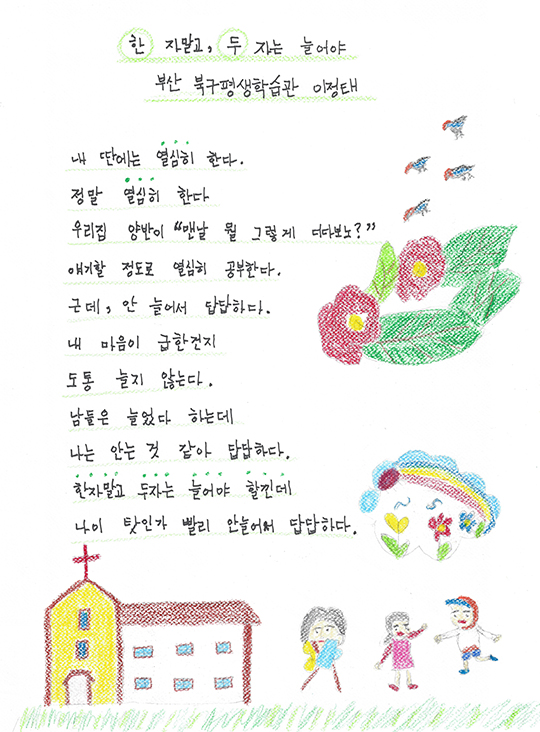 한 자말고, 두 자는 늘어야
부산 북구평생학습관 이정태
내 딴에는 열심히 한다.
정말 열심히 한다
우리집 양반이 "맨날 뭘 그렇게 디다보노?"
얘기할 정도로 열심히 공부한다.
근데, 안 늘어서 답답하다.
내 마음이 급한건지
도통 늘지 않는다.
남들은 늘었다 하는데
나는 안는 것 같아 답답하다.
한자말고 두자는 늘어야 할낀데
나이 탓인가 빨리 안늘어서 답답하다.